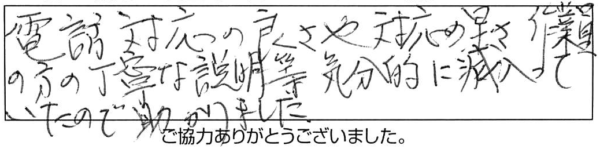 電話対応の良さや対応の早さ 作業員
の方の丁寧な説明等 気分的に滅入って
いたので助かりました
ご協力ありがとうございました。